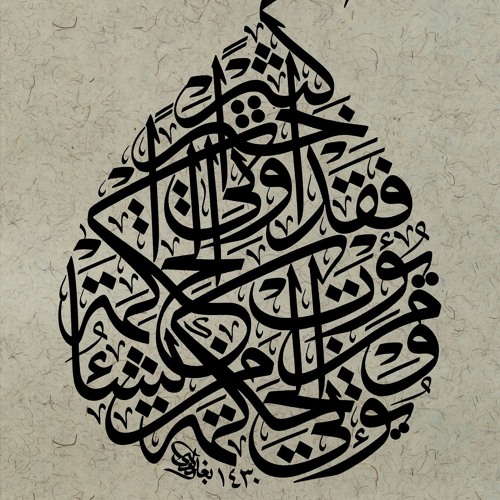 يؤتي الحكمة من يشاء
ومن يؤت الحكمة
فقد أوتي خيرا
كثيرا
١٤٣٠